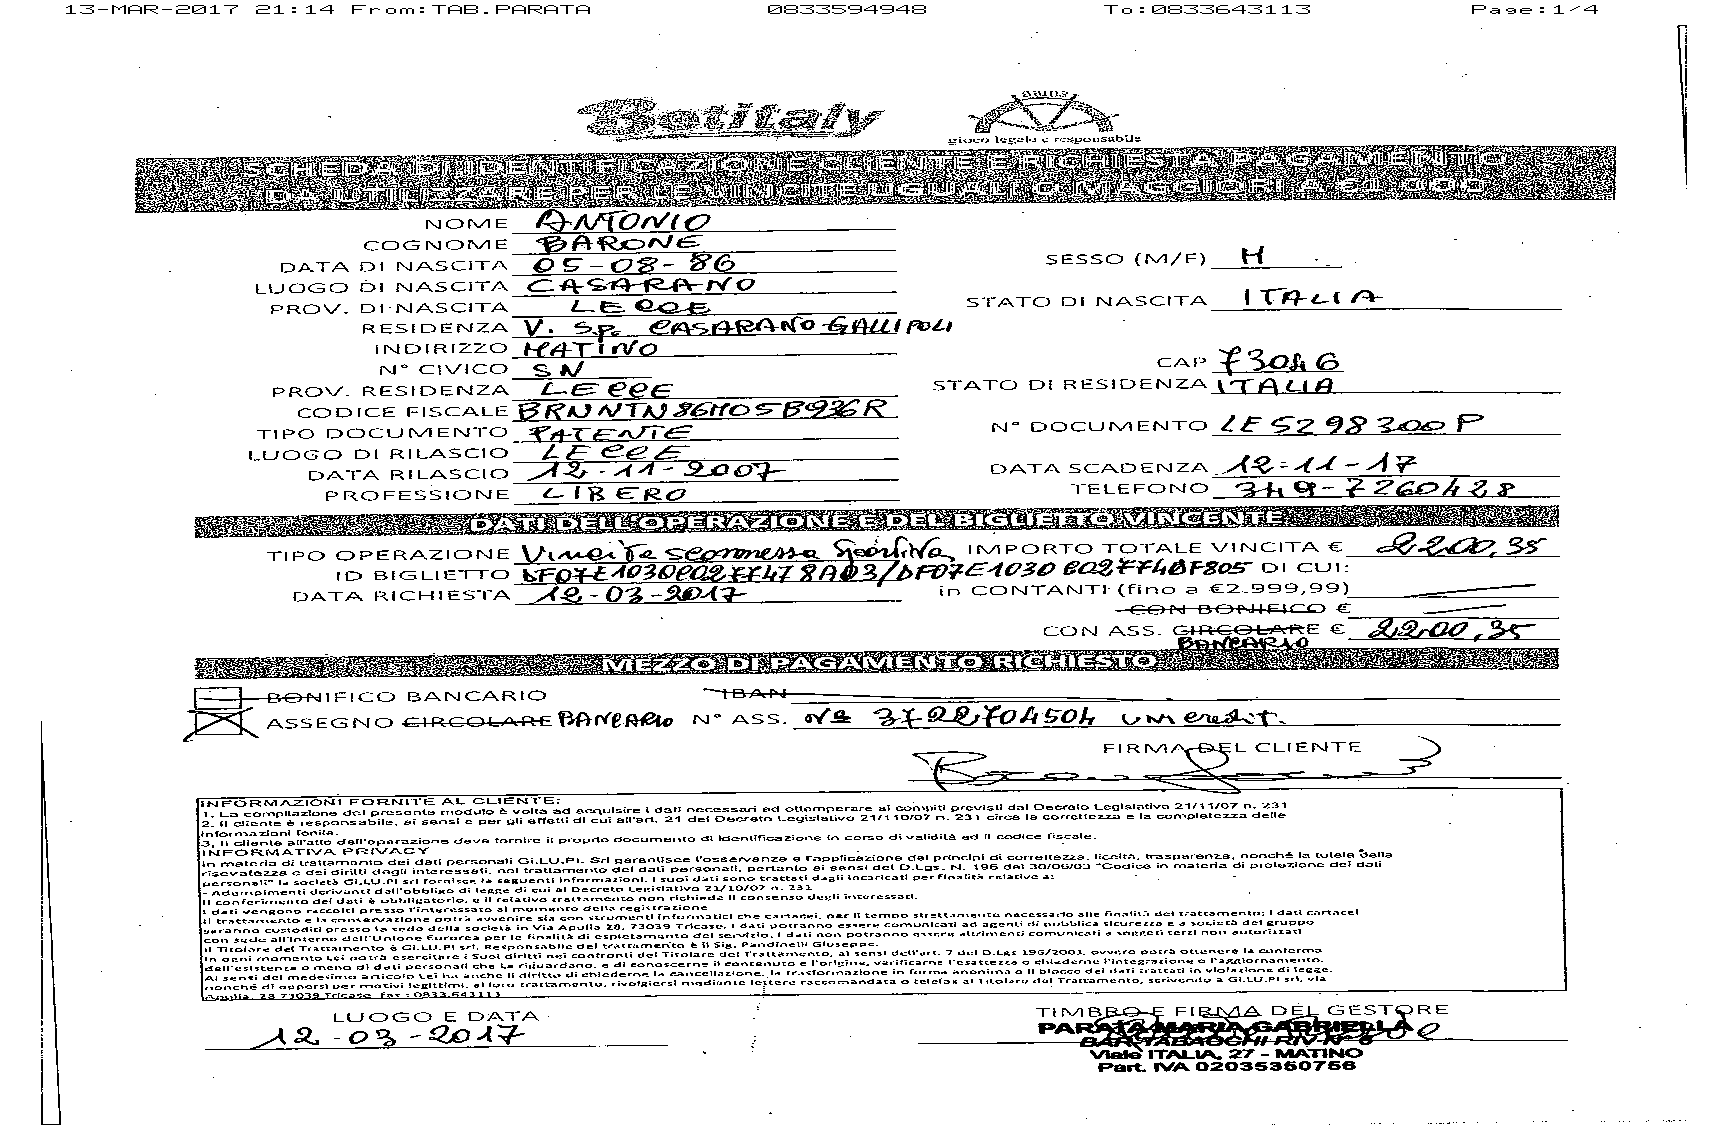 13-MAR-2017 21:14 From:TAB.PARATA 0833594948 To:0833643113 Page:1/4
Betitaly
gioco legale e responsabile
SCHEDA DI IDENTIFICAZIONE CLIENTE E RICHIESTA PAGAMENTO
DA UTILIZZARE PER LE VINCITE UGUALI O MAGGIORI A €1.000
NOME ANTONIO
COGNOME BARONE
DATA DI NASCITA 05-08-86 SESSO (M/F) M
LUOGO DI NASCITA CASARANO
PROV. DI NASCITA LECCE STATO DI NASCITA ITALIA
RESIDENZA V. SP. CASARANO-GALLIPOLI
INDIRIZZO MATINO
N° CIVICO SN CAP 73046
PROV. RESIDENZA LECCE STATO DI RESIDENZA ITALIA
CODICE FISCALE BRNNTN86M05B936R
TIPO DOCUMENTO PATENTE N° DOCUMENTO LE5298300P
LUOGO DI RILASCIO LECCE
DATA RILASCIO 12-11-2007 DATA SCADENZA 12-11-17
PROFESSIONE LIBERO TELEFONO 349-7260428
DATI DELL'OPERAZIONE E DEL BIGLIETTO VINCENTE
TIPO OPERAZIONE Vincita scommessa Sportiva IMPORTO TOTALE VINCITA € 2200,35
ID BIGLIETTO DI CUI:
DATA RICHIESTA 12-03-2017 in CONTANTI (fino a €2.999,99)
CON BONIFICO €
CON ASS. CIRCOLARE € 2200,35
BANCARIO
MEZZO DI PAGAMENTO RICHIESTO
BONIFICO BANCARIO IBAN
ASSEGNO CIRCOLARE BANCARIO N° ASS. N° 3722704504 unicredit.
FIRMA DEL CLIENTE
INFORMAZIONI FORNITE AL CLIENTE:
1. La compilazione del presente modulo è volta ad acquisire i dati necessari ed ottemperare ai compiti previsti dal Decreto Legislativo 21/11/07 n. 231
2. Il cliente è responsabile, ai sensi e per gli effetti di cui all'art. 21 del Decreto Legislativo 21/110/07 n. 231 circa la correttezza e la completezza delle
informazioni fonita.
3. Il cliente all'atto dell'operazione deve fornire il proprio documento di identificazione in corso di validità ed il codice fiscale.
INFORMATIVA PRIVACY
In materia di trattamento dei dati personali GI.LU.PI. Srl garantisce l'osservanza e l'applicazione dei principi di correttezza, liceità, trasparenza, nonché la tutela della
riservatezza e dei diritti degli interessati, nel trattamento dei dati personali, pertanto ai sensi del D.Lgs. N. 196 del 30/06/03 "Codice in materia di protezione dei dati
personali" la società GI.LU.PI srl fornisce la seguenti informazioni. I suoi dati sono trattati dagli incaricati per finalità relative a:
- Adempimenti derivanti dall'obbligo di legge di cui al Decreto Legislativo 21/10/07 n. 231
Il conferimento dei dati è obbligatorio, e il relativo trattamento non richiede il consenso degli interessati.
I dati vengono raccolti presso l'interessato al momento della registrazione
Il trattamento e la conservazione potrà avvenire sia con strumenti informatici che cartacei, per il tempo strettamente necessario alle finalità del trattamento; i dati cartacei
verranno custoditi presso la sede della società in Via Apulia 28, 73039 Tricase. I dati potranno essere comunicati ad agenti di pubblica sicurezza e a società del gruppo
con sede all'interno dell'Unione Europea per le finalità di espletamento del servizio. I dati non potranno essere altrimenti comunicati a soggetti terzi non autorizzati
Il Titolare del Trattamento è GI.LU.PI srl. Responsabile del trattamento è il Sig. Pandinelli Giuseppe.
In ogni momento Lei potrà esercitare i Suoi diritti nei confronti del Titolare del Trattamento, ai sensi dell'art. 7 del D.Lgs 196/2003, ovvero potrà ottenere la conferma
dell'esistenza o meno di dati personali che La riguardano, e di conoscerne il contenuto e l'origine, verificarne l'esattezza o chiederne l'integrazione e l'aggiornamento.
Ai sensi del medesimo articolo Lei ha anche il diritto di chiederne la cancellazione, la trasformazione in forma anonima o il blocco dei dati trattati in violazione di legge,
nonché di opporsi per motivi legittimi, al loro trattamento, rivolgersi mediante lettere raccomandata o telefax al Titolare del Trattamento, scrivendo a GI.LU.PI srl, via
Apulia, 28 73039 Tricase fax: 0833.643113
LUOGO E DATA TIMBRO E FIRMA DEL GESTORE
12-03-2017 PARATA MARIA GABRIELLA
BAR TABACCHI RIV. N° 6
Viale ITALIA, 27 - MATINO
Part. IVA 02035360756